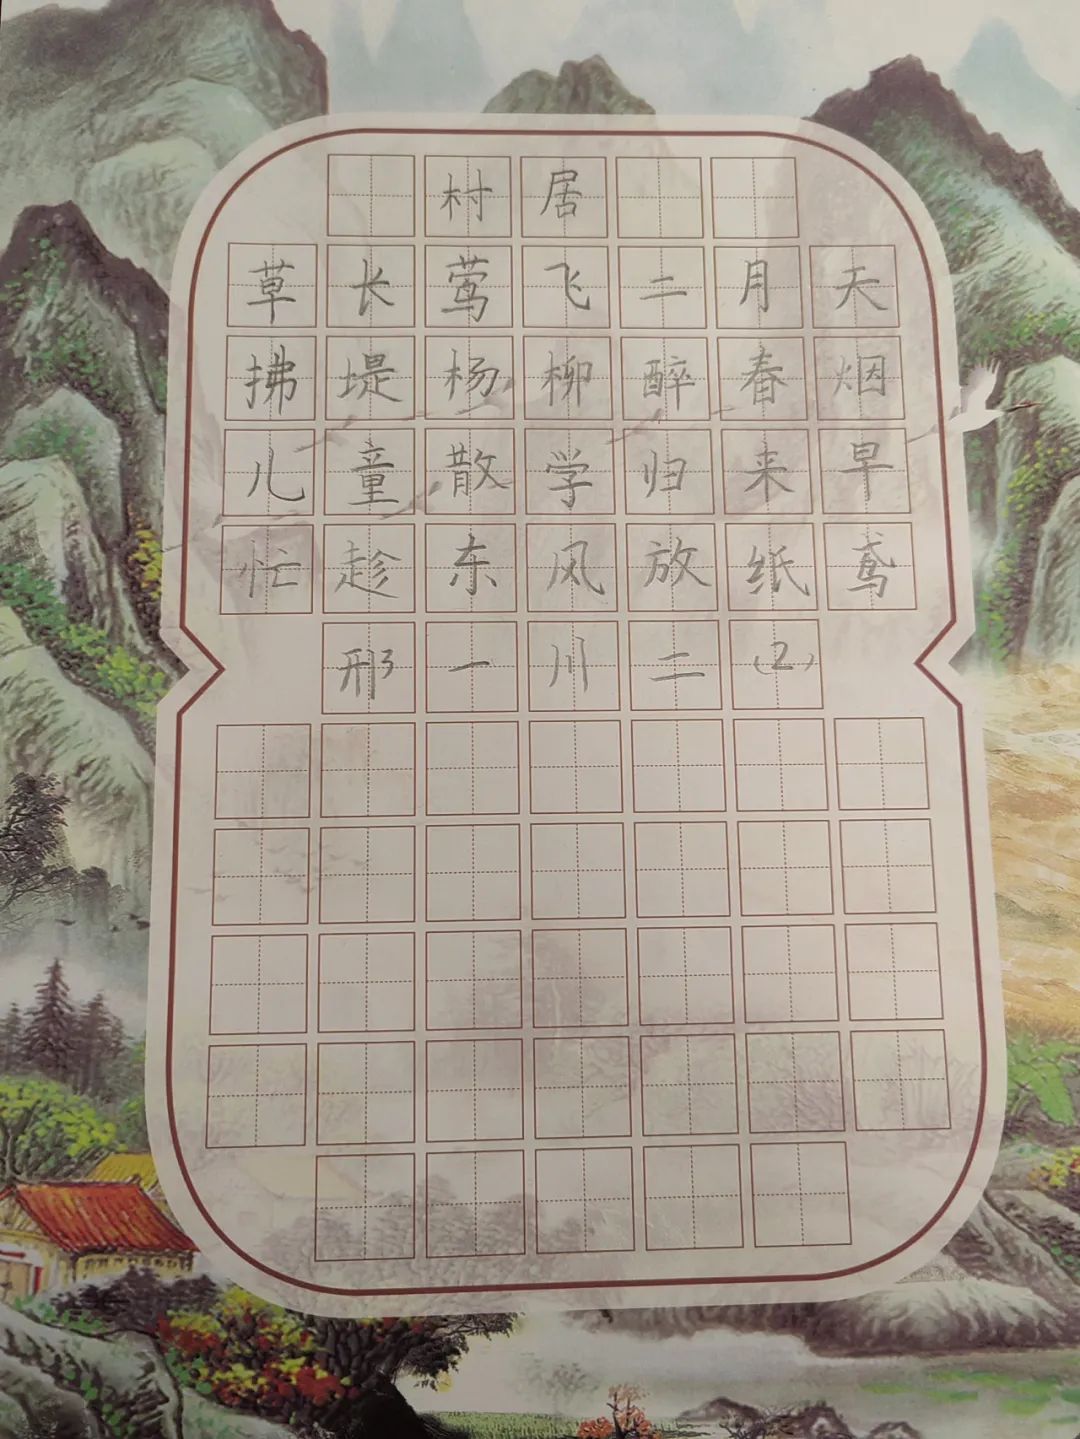 村居
草长莺飞二月天
拂堤杨柳醉春烟
儿童散学归来早
忙趁东风放纸鸢
邢一川二(2)